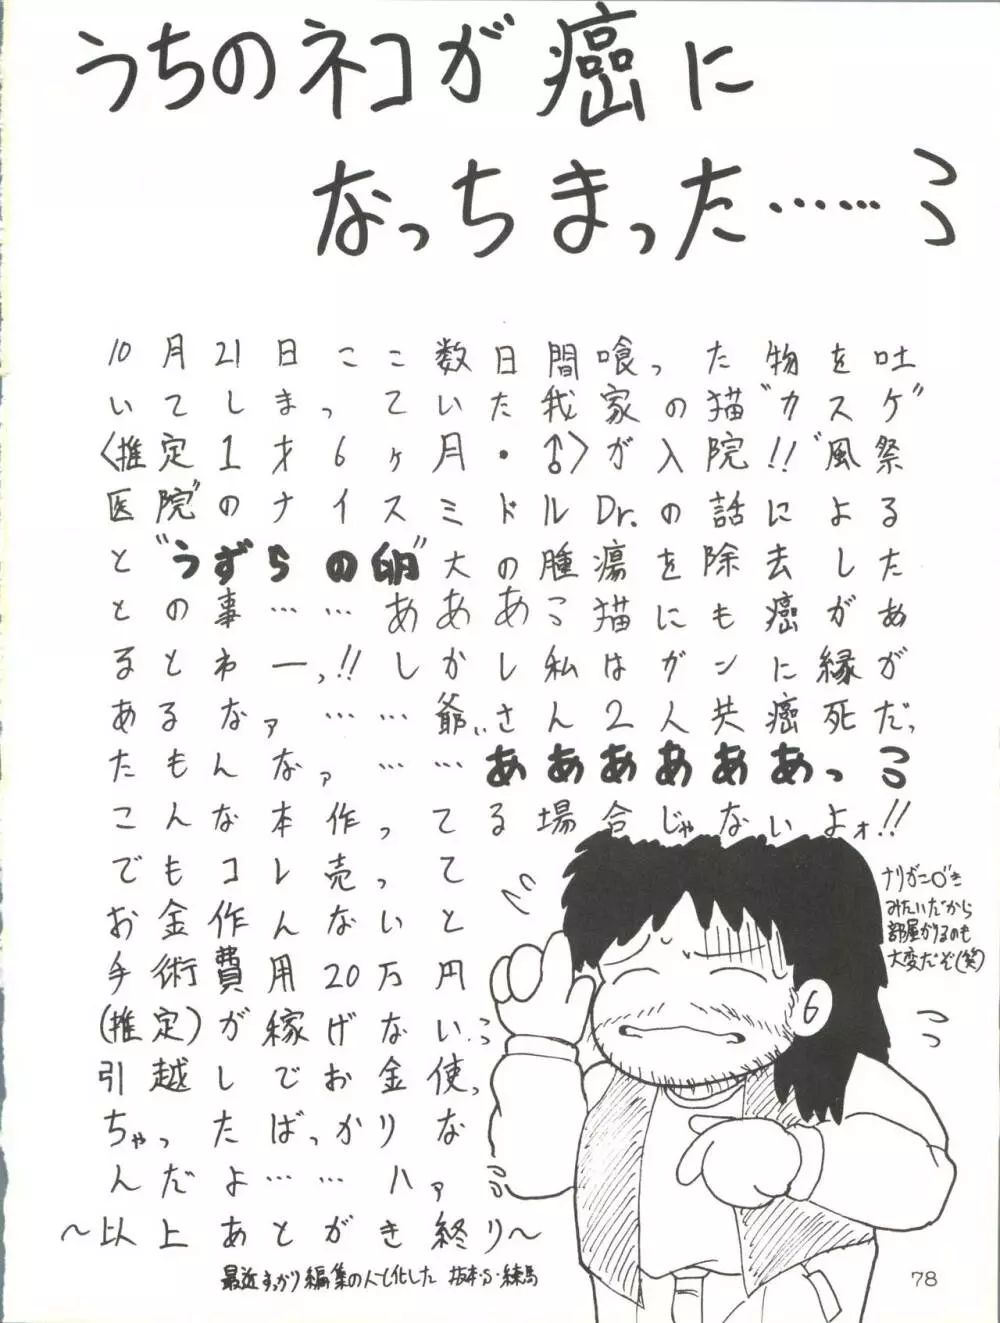 うちのネコが癌に
なっちまった……
10月21日ここ数日間喰った物を吐
いてしまっていた我家の猫"カスケ"
〈推定1才6ヶ月・♂〉が入院!!"風祭
医院"のナイスミドルDr.の話による
と"うずらの卵"大の腫瘍を除去した
との事……ああああこ猫にも癌があ
るとわーっ!!しかし私はガンに縁が
あるなァ……爺ぃさん2人共癌死だっ
たもんなァ……ああああああっ
こんな本作ってる場合じゃないよォ!!
でもコレ売って
お金作んないと
手術費用20万円
(推定)が稼げない
引越しでお金使っ
ちゃったばっかりな
んだよ……ハァ
～以上あとがき終り～
最近すっかり編集の人と化した 坂本・S・練馬
みたいだから
部屋かりるのも
大変だぞ(笑)
78